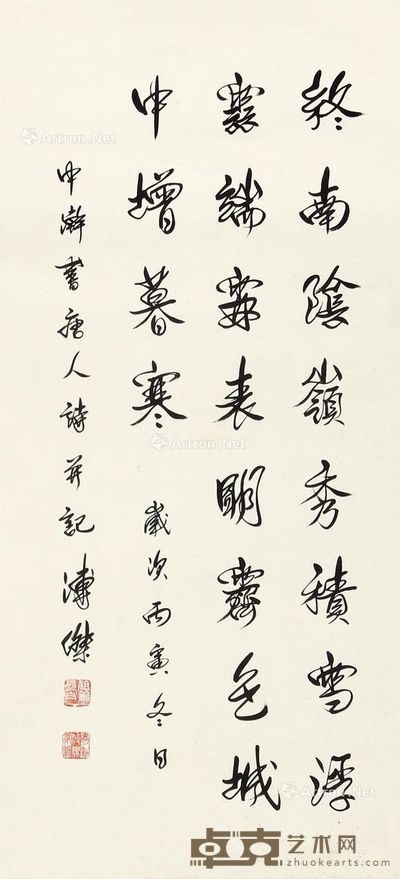 終南陰嶺秀積雪浮
雲端表明霽色城
中增暮寒
歲次丙寅冬日
中澣書唐人詩并記 溥傑
Artron.Net
Artron.Net
Artron.Net
Artron.Net
卓克艺术网
www.zhuokearts.com